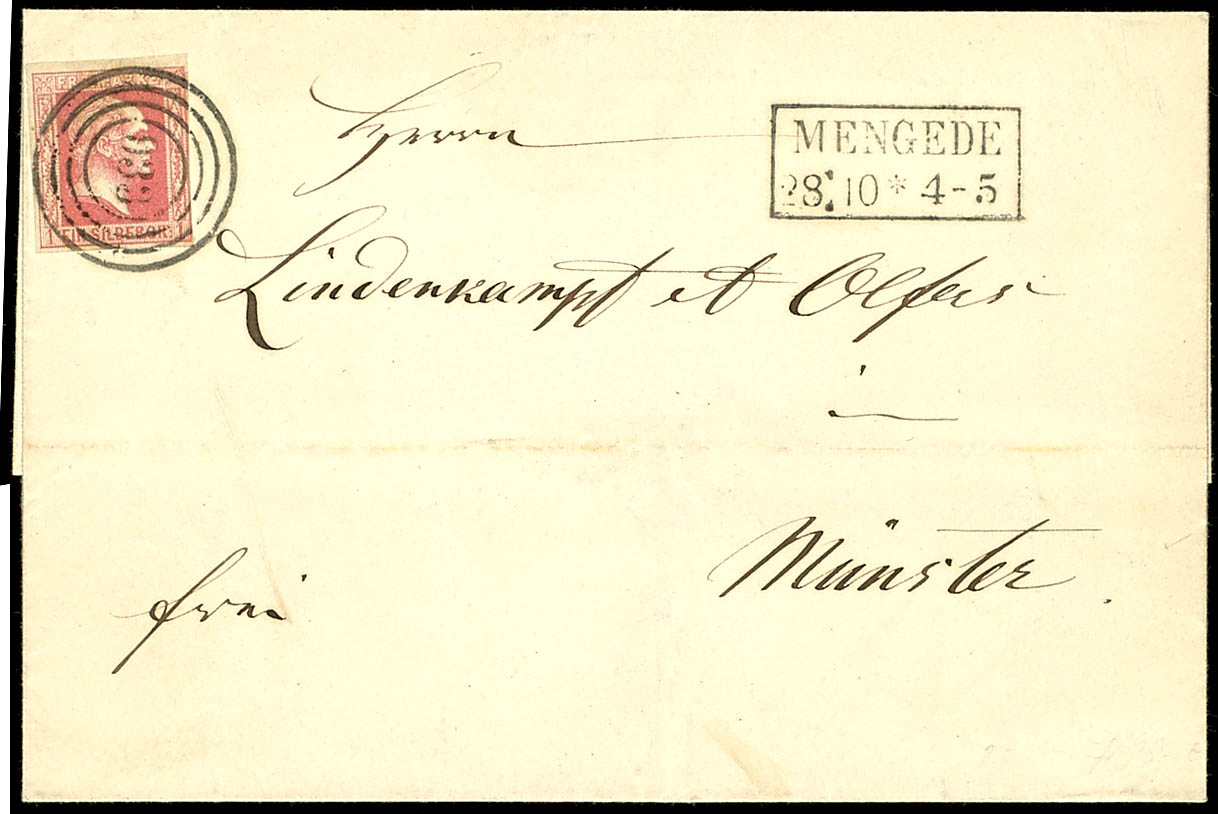 FREIMARKE
1 EIN SILBERGR. 1
Herrn
MENGEDE
28. 10 * 4-5
Lindenkampf et Olfers
in
Münster.
frei